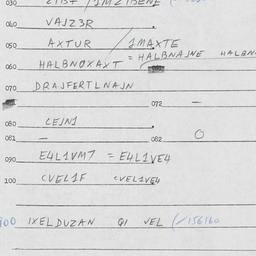 040 VAJZ3R
050 AXTUR / 1MAXTE
060 HALBNØXAXT = HALBNAJNE HALBN
070 DRAJFERTLNAJN
072 —
080 LEJN1
081 — 082 O
090 E4L1VM7 = E4L1VE4
100 CVEL1F CVEL1VE4
IXELDUZAN QI VEL (/156160